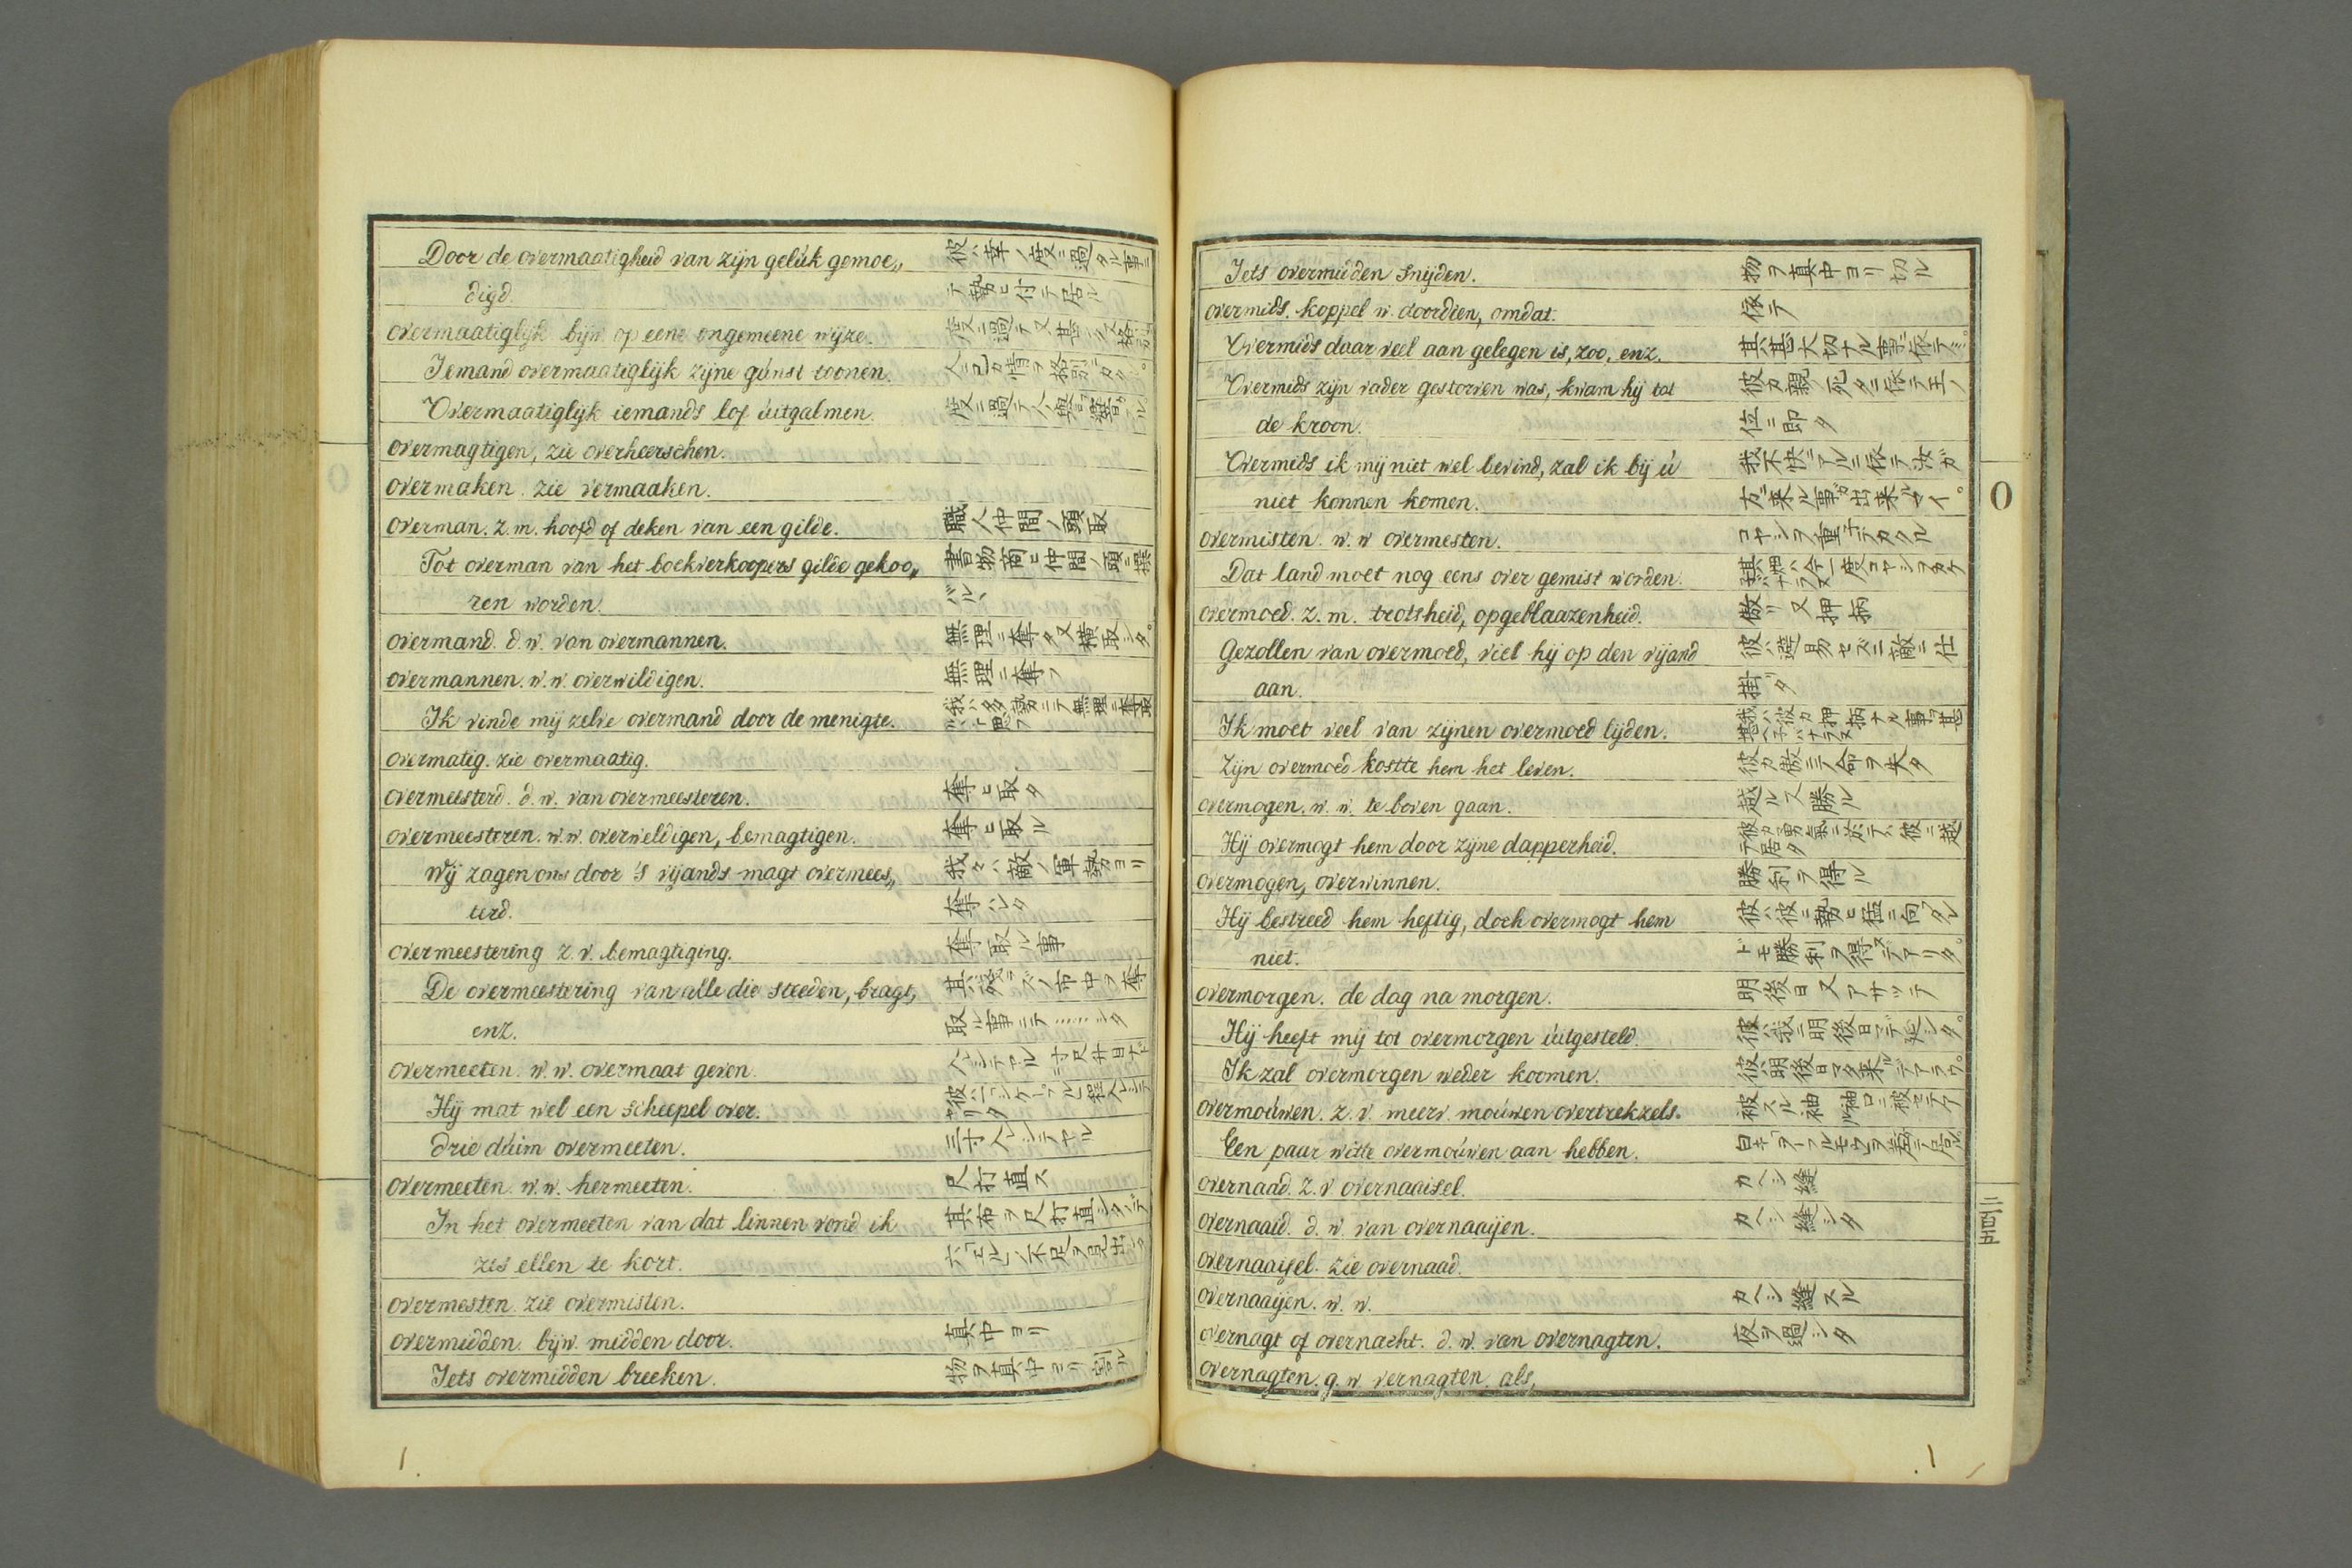 Door de overmaatigheid van zijn gelúk gemoe„ 彼ハ幸ノ度ニ過タル事ニ
digd. テ勢ヒ付テ居ル
overmaatiglijk bijw op eene ongemeene wijze. 度ニ過テ又甚ク又格別ニ
Iemand overmaatiglijk zijne gúnst toonen.
Overmaatiglijk iemands lof úitgalmen.
overmagtigen, zie overheerschen.
overmaken. zie vermaaken.
overman. z. m. hoofd of deken van een gilde. 職人仲間ノ頭取
Tot overman van het boekverkoopers gilde gekoo„ 書物商ヒ仲間ノ頭ニ撰
ren worden. バルヽ
overmand. d. w. van overmannen. 無理ニ奪タ又横取シタ。
overmannen. w. w. overwildigen. 無理ニ奪フ
Ik vinde mij zelve overmand door de menigte. 我ハ多勢ニテ無理ニ奪取
overmatig. zie overmaatig.
overmeesterd. d. w. van overmeesteren. 奪ヒ取タ
overmeesteren. w. w. overweldigen, bemagtigen. 奪ヒ取ル
Wij zagen ons door 's vijands magt overmees„ 我々ハ敵ノ軍勢ヨリ
terd. 奪ハレタ
overmeestering z. v. bemagtiging. 奪取ル事
De overmeestering van alle die steeden, bragt, 其残ラズノ市中ヲ奪
enz. 取ル事ニテ……シタ
overmeeten. w. w. overmaat geven.
Hij mat wel een scheepel over.
drie dúim overmeeten. 三寸入レシテヤル
overmeeten. w. w. hermeeten. 尺打直ス
In het overmeeten van dat linnen vond ik 其布ヲ尺打直シタデ
zes ellen te kort. 六「エル」ノ不足ヲ見出シタ
overmesten. zie overmisten.
overmidden. bijw. midden door. 真中ヨリ
Iets overmidden breeken. 物ヲ真中ヨリ割ル
1.
Iets overmidden snijden. 物ヲ真中ヨリ切ル
overmids. koppel w. doordien, omdat. 依テ
Overmids daar veel aan gelegen is, zoo, enz. 其甚大切ナル事ニ依テ…。
Overmids zijn vader gestorven was, kwam hij tot 彼カ親ノ死タニ依テ王ノ
de kroon. 位ニ即タ
Overmids ik mij niet wel bevind, zal ik bij ú 我不快ニアルニ依テ汝ガ
niet konnen komen. 方ヘ来ル事ガ出来ルマイ。
overmisten. w. w overmesten. コヤシヲ重子テカクル
Dat land moet nog eens over gemist worden. 其畑ハ今一度コヤシヲカケ
overmoed. z. m. trotsheid, opgeblaazenheid. 傲リ又押柄
Gezollen van overmoed, viel hij op den vijand 彼ハ辟易セズニ敵ニ仕
aan. 掛タ
Ik moet veel van zijnen overmoed lijden. 我ハ彼カ押柄ナル事ヲ甚
Zijn overmoed kostte hem het leven. 彼カ傲ニテ命ヲ失タ
overmogen. w. w. te boven gaan. 越ル又勝ル
Hij overmogt hem door zijne dapperheid. 彼カ勇氣ニ於テハ彼ニ越テ居タ
overmogen, overwinnen. 勝利ヲ得ル
Hij bestreed hem heftig, doch overmogt hem 彼ハ彼ニ勢ヒ猛ニ向フタレ
niet. ドモ勝利ヲ得ズデアリタ。
overmorgen. de dag na morgen. 明後日又アサツテ
Hij heeft mij tot overmorgen úitgesteld. 彼ハ我ニ明後日マデ延シタ。
Ik zal overmorgen weder koomen. 彼ハ明後日マタ来ルデアラウ。
overmoúwen. z. v. meerv. moúwen overtrekzels.
Een paar witte overmoúwen aan hebben.
overnaad. z. v overnaaisel. カヘシ縫
overnaaid. d. w. van overnaaijen. カヘシ縫シタ
overnaaisel. zie overnaad.
overnaaijen. w. w. カヘシ縫スル
overnagt of overnacht. d. w. van overnagten. 夜ヲ過シタ
overnagten. g. w vernagten. als,
O
二百五
.1